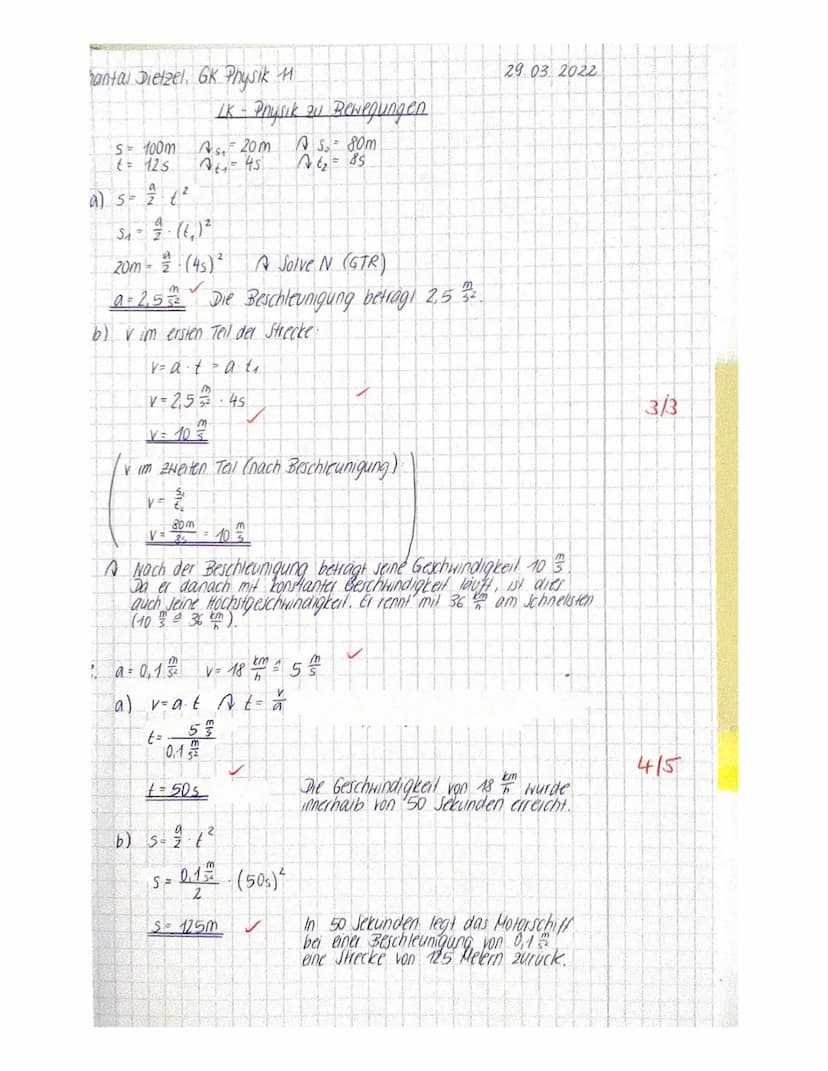 hantal Dietzel, GK Physik 11 29.03.2022
LK - Physik zu Bewegungen
s = 100m ↷ s₁ = 20m ↷ s₂ = 80m
t = 12s ↷ t₁ = 4s ↷ t₂ = 8s
a) s = a/2 · t²
s₁ = a/2 · (t₁)²
20m = a/2 · (4s)² ↷ SolveN (GTR)
a = 2,5 m/s² ✓ Die Beschleunigung beträgt 2,5 m/s².
b) v im ersten Teil der Strecke:
v = a · t = a · t₁
v = 2,5 m/s² · 4s ✓
3/3
v = 10 m/s ✓
(v im zweiten Teil (nach Beschleunigung):
v = s₂/t₂
v = 80m/8s = 10 m/s)
↷ Nach der Beschleunigung beträgt seine Geschwindigkeit 10 m/s.
Da er danach mit konstanter Geschwindigkeit läuft, ist dies
auch seine Höchstgeschwindigkeit. Er rennt mit 36 km/h am schnellsten
(10 m/s ≙ 36 km/h).
a = 0,1 m/s² v = 18 km/h ≙ 5 m/s ✓
a) v = a · t ↷ t = v/a
t = 5 m/s / 0,1 m/s²
4/5
t = 50s ✓ Die Geschwindigkeit von 18 km/h wurde
innerhalb von 50 Sekunden erreicht.
b) s = a/2 · t²
s = 0,1 m/s² / 2 · (50s)²
s = 125m ✓ In 50 Sekunden legt das Motorschiff
bei einer Beschleunigung von 0,1 m/s²
eine Strecke von 125 Metern zurück.